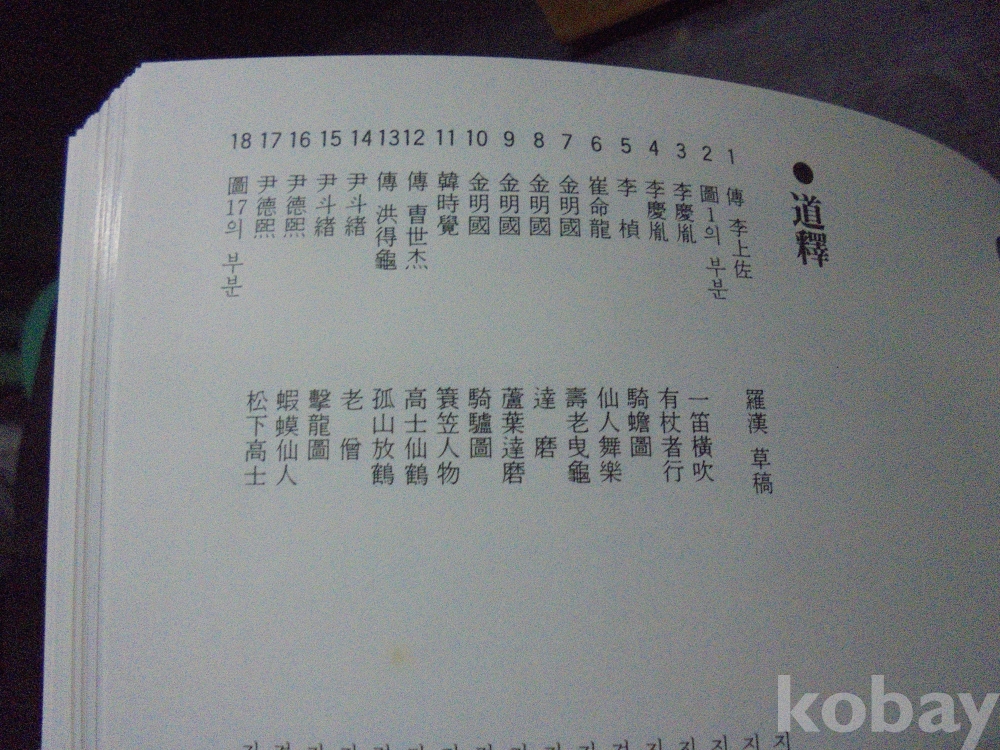 ● 道釋
1 傳 李上佐 羅漢 草稿
2 圖1의 부분
3 李慶胤 一笛橫吹
4 李慶胤 有杖者行
5 李 楨 騎蟾圖
6 崔命龍 仙人舞樂
7 金明國 壽老曳龜
8 金明國 達 磨
9 金明國 蘆葉達磨
10 金明國 騎驢圖
11 韓時覺 簑笠人物
12 傳 曺世杰 高士仙鶴
13 傳 洪得龜 孤山放鶴
14 尹斗緖 老 僧
15 尹斗緖 擊龍圖
16 尹德熙 蝦蟆仙人
17 尹德熙 松下高士
18 圖17의 부분
kobay